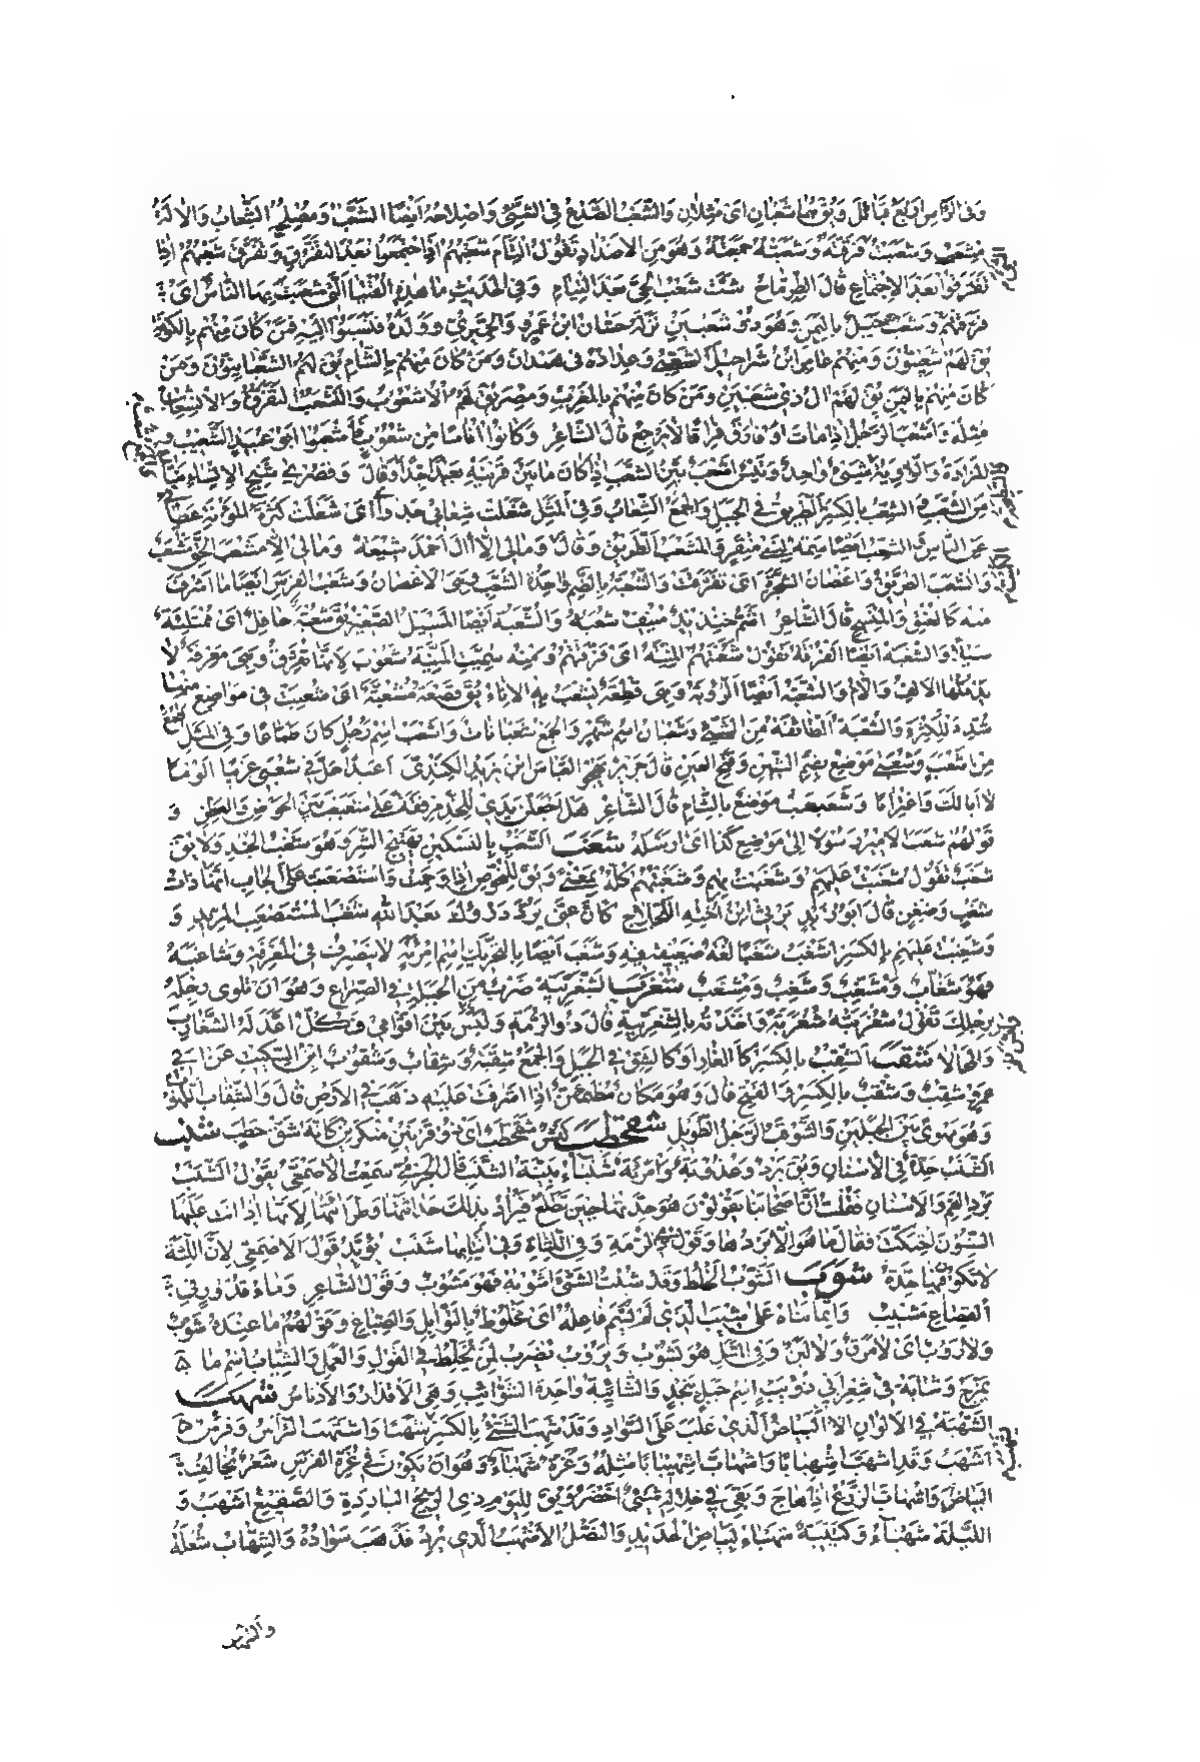 وفى الرأس اربع قبائل ويق هما شعبان اى مثلان والشعب الصدع فى الشئ واصلاحه ايضا الشعب ومصلحه الشعاب والآلة
مشعب وشعبت فرقته وشعبته جمعته وهو من الاضداد تقول التأم شعبهم اى اجتمعوا بعد التفرق وتفرق شعبهم اذا
تفرقوا بعد الاجتماع قال الطرماح شت شعب الحى بعد التيام وفى الحديث ما هذه الفتيا التى شعبت بها الناس اى
فرقتهم وشعب جبل باليمن وهو ذو شعبين نزله حسان ابن عمرو الحميرى وولده فنسبوا اليه فمن كان منهم بالكوفة
يق لهم شعبيون ومنهم عامر ابن شراحيل الشعبى وعداده فى همدان ومن كان منهم بالشام يق لهم الشعبانيون ومن
كان منهم باليمن يق لهم ال ذى شعبين ومن كان منهم بالمغرب ومصر يق لهم الاشعوب والتشعب التفرق والانشعاب
مثله واشعب الرجل اذا مات او فارق فراقا لا يرجع قال الشاعر وكانوا اناسا من شعوب فاشعبوا ابو عبيد الشعيب
المزادة والراوية شئ واحد وتيس اشعب بين الشعب اذا كان ما بين قرنيه بعيدا جدا وقال وقصرى شنج الانساء نباح
من الشعب والشعب بالكسر الطريق فى الجبل والجمع الشعاب وفى المثل شغلت شعابى جدواى اى شغلت كثرة المؤنة عطائى
عن الناس والشعب ايضا سمة لبنى منقر والمشعب الطريق وقال ومالى الا آل احمد شيعة ومالى الا مشعب الحق مشعب
وانشعب الطريق واغصان الشجرة اى تفرقت والشعبة بالضم واحدة الشعب وهى الاغصان وشعب الفرس ايضا ما اشرف
منه كالعنق والمنسج قال الشاعر اشم خنذيذ منيف شعبه والشعبة ايضا المسيل الصغير يق شعبة حافل اى ممتلئة
سيلا والشعبة ايضا الفرقة تقول شعبتهم المنية اى فرقتهم ومنه سميت المنية شعوب لانها تفرق وهى معرفة لا
يدخلها الالف واللام والشعبة ايضا الرؤبة وهى قطعة يشعب بها الاناء يق قصعة مشعبة اى شعبت فى مواضع منها
شدد للكثرة والشعبة الطائفة من الشئ وشعبان اسم شهر والجمع شعبانات واشعب اسم رجل كان طماعا وفى المثل اطمع
من اشعب وشعبى موضع بضم الشين وفتح العين قال جرير يهجو العباس ابن يزيد الكندى اعبدا حل فى شعبى غريبا الؤما
لا ابا لك واغترابا وشعبعب موضع بالشام قال الشاعر هل اجعلن يدى للخد مرفقة على شعبعب بين الحوض والعطن و
قولهم شعب الامير رسولا الى موضع كذا اى ارسله شغب الشغب بالتسكين تهييج الشر وهو شغب الجند ولا يق
شغب تقول شغبت عليهم وشغبت بهم وشغبتهم كله بمعنى
شغب وضغن قال ابو زبيد يرثى ابن اخيه كان عنى يرد درؤك بعد الله شغب المستصعب المريد و
وشغبت عليهم بالكسر اشغب شغبا لغة ضعيفة فيه وشغب ايضا بالتحريك اسم امرأة لا ينصرف فى المعرفة وشاغبه
فهو شغاب ومشغب وشغب ومشغب شغزب الشغزبية ضرب من الحيلة فى الصراع وهو ان تلوى رجله
برجلك تقول شغزبته شغزبة واخذته بالشغزبية قال ذو الرمة ولبس بين اقوامى فكل اعد له الشغازب
والمحالا شقب الشقب بالكسر كالغار او كالشق فى الجبل والجمع شقبة وشقاب وشقوب ابن السكيت عن ابى
عمرو شقب وشقب بالكسر والفتح قال وهو مكان مطمئن اذا اشرفت عليه ذهب فى الارض قال والشقاب اللهوب
وهو مهوى بين الجبلين والشوقب الرجل الطويل شقحطب كبش شقحطب اى ذو قرنين منكرين كانه شق حطب شنب
الشنب حدة فى الاسنان ويق برد وعذوبة وامرأة شنباء بينة الشنب قال الجرمى سمعت الاصمعى يقول الشنب
برد الفم والاسنان فقلت ان اصحابنا يقولون هو حدتها حين تطلع فيراد بذلك حداثتها وطراءتها لانها اذا اتت عليها
السنون احتكت فقال ما هو الا بردها وقول ذى الرمة وفى اللثات وفى انيابها شنب يؤيد قول الاصمعى لان اللثة
لا تكون فيها حدة شوب الشوب الخلط وقد شبت الشئ اشوبه فهو مشوب وقول الشاعر وماء قدور فى
القصاع مشيب وانما بناه على شيب الذى لم يسم فاعله اى مخلوط بالتوابل والصباغ وقولهم ما عنده شوب
ولا روب اى لا مرق ولا لبن وفى المثل هو يشوب ويروب يضرب لمن يخلط فى القول والعمل والشياب اسم ما
يمزج وشابة فى شعر ابى ذؤيب اسم جبل بنجد والشائبة واحدة الشوائب وهى الاقذار والادناس شهب
الشهبة فى الالوان البياض الذى غلب على السواد وقد شهب الشئ بالكسر شهبا واشتهب الرأس وفرس
اشهب وقد اشهب اشهبابا واشهاب اشهيبابا مثله وغرة شهباء وهو ان يكون فى غرة الفرس شعر يخالف
البياض واشهاب الزرع اذا هاج وبقى فى خلاله شئ اخضر ويق لليوم ذى الريح الباردة والصقيع اشهب و
الليلة شهباء وكتيبة شهباء لبياض الحديد والنصل الاشهب الذى برد فذهب سواده والشهاب شعلة